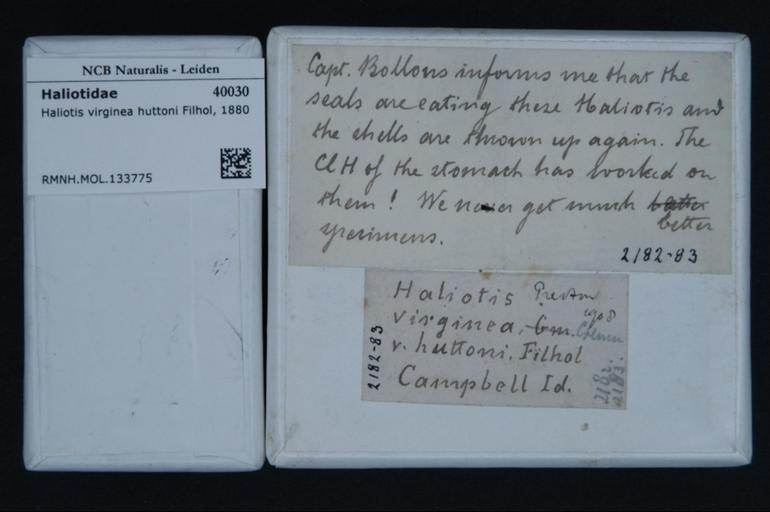 NCB Naturalis - Leiden
Haliotidae 40030
Haliotis virginea huttoni Filhol, 1880
RMNH.MOL.133775
Capt. Bollons informs me that the
seals are eating these Haliotis and
the shells are thrown up again. The
ClH of the stomach has worked on
them! We never get much
better
specimens.
2182-83
Haliotis Preston
1908
virginea, Gm. Chemn
v. huttoni. Filhol
Campbell Id.
2182-83
2182.
2183.